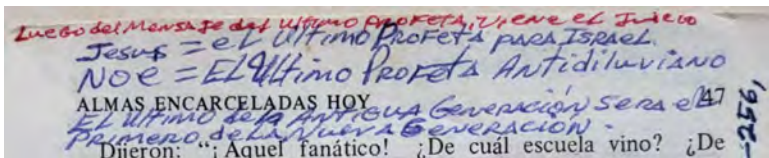 Luego del Mensaje del Ultimo PROFETA, Viene el Juicio
Jesus = el Ultimo PROFETA PARA ISRAEL.
NOE = EL Ultimo PROFETA Antidiluviano
ALMAS ENCARCELADAS HOY 47
EL Ultimo de la ANTIGUA GENERACIÓN SERA el
PRIMERO de LA NUEVA GENERACIÓN.
Dijeron: “¡Aquel fanático! ¿De cuál escuela vino? ¿De